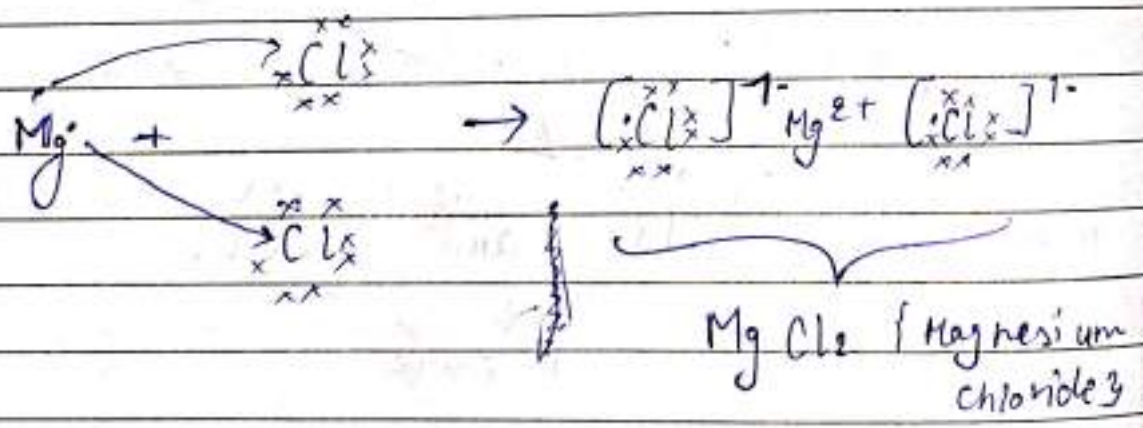 Cl
Mg + → [Cl]1- Mg2+ [Cl]1-
Cl
MgCl2 {Magnesium
chloride}